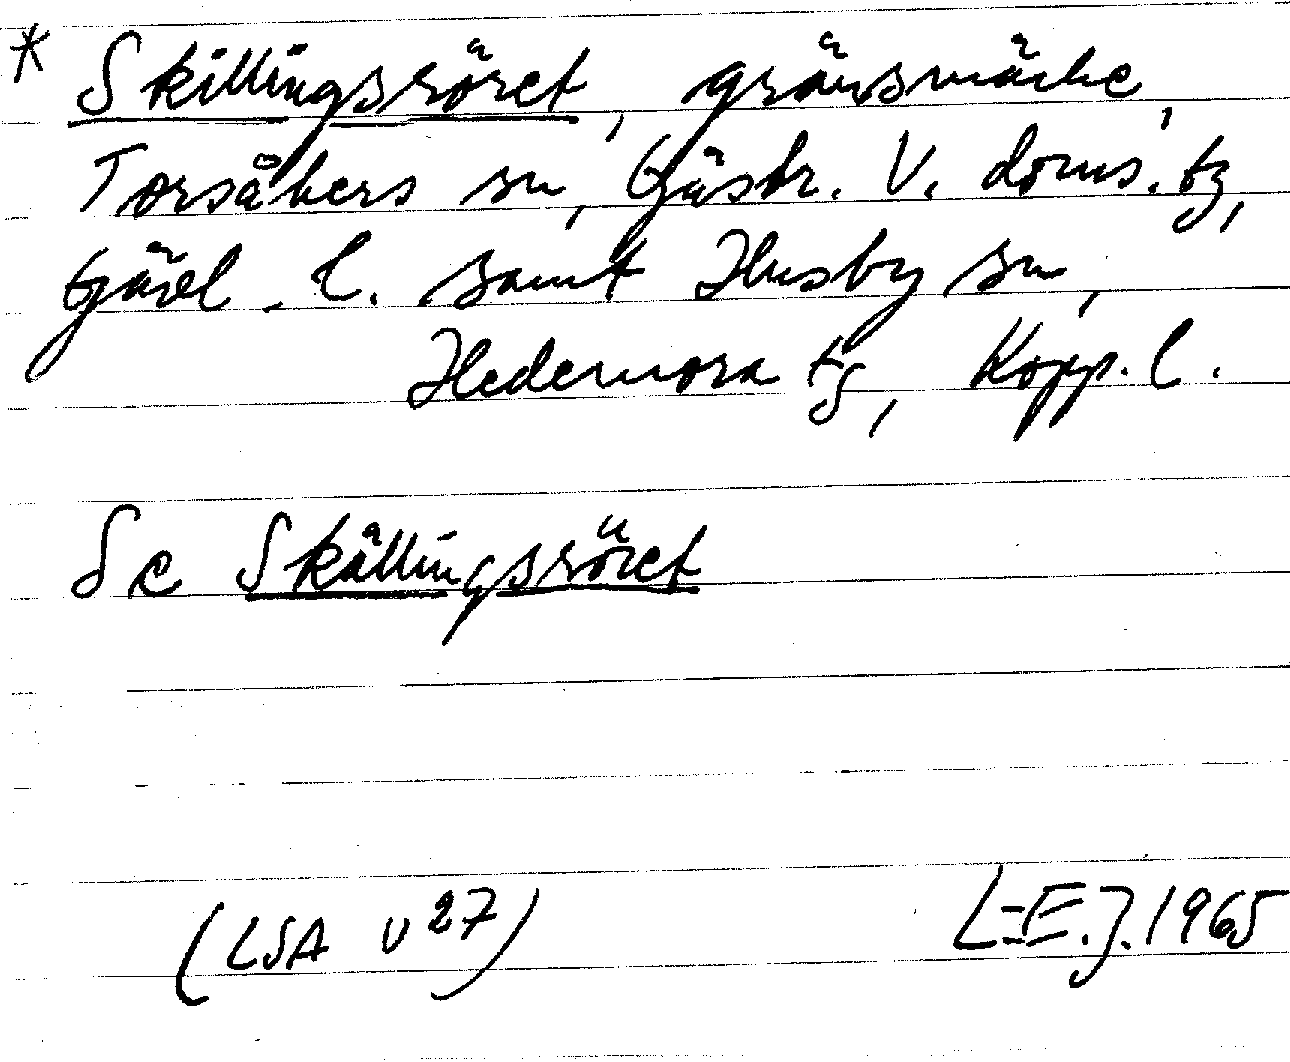 * Skillingsröret, gränsmärke,
Torsåkers sn, Gästr. V. doms. tg,
Gävl. l. samt Husby sn,
Hedemora tg, Kopp. l.
Se Skällingsröret
(LSA V 27) L-E. J. 1965